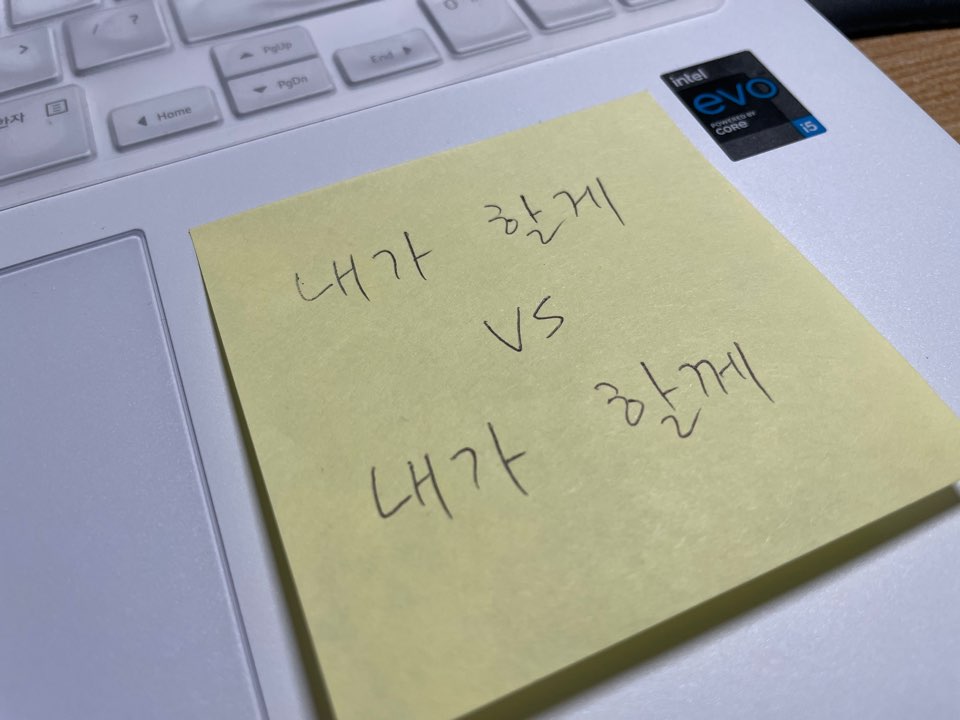 > 
/ ?
PgUp
End
한자
Home
PgDn
intel
evo
POWERED BY
CORE
i5
내가 할게
vs
내가 할께